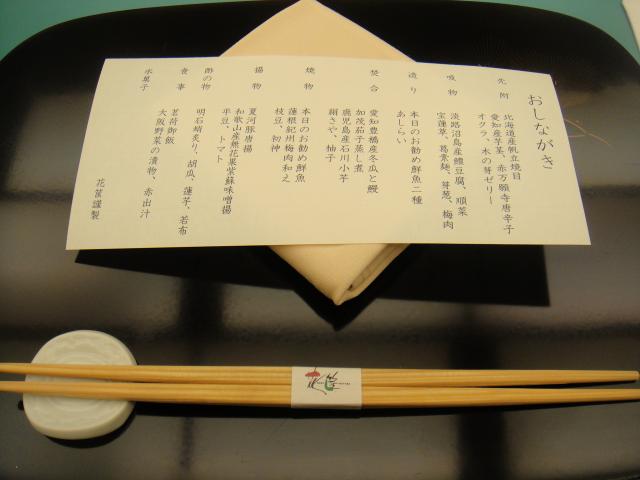 おしながき
先附
北海道産帆立焼目
愛知産芋茎、赤万願寺唐辛子
オクラ、木の芽ゼリー
吸物
淡路沼島産鱧豆腐、順菜
宝蓮草、葛素麺、芽葱、梅肉
造り
本日のお勧め鮮魚二種
あしらい
焚合
愛知豊橋産冬瓜と鰻
加茂茄子蒸し煮
鹿児島産石川小芋
絹さや、柚子
焼物
本日のお勧め鮮魚
蓮根紀州梅肉和え
枝豆、初神
揚物
夏河豚唐揚
和歌山産無花果紫蘇味噌揚
平豆、トマト
酢の物
明石蛸炙り、胡瓜、蓮芋、若布
食事
茗荷御飯
大阪野菜の漬物、赤出汁
水菓子
花筐謹製